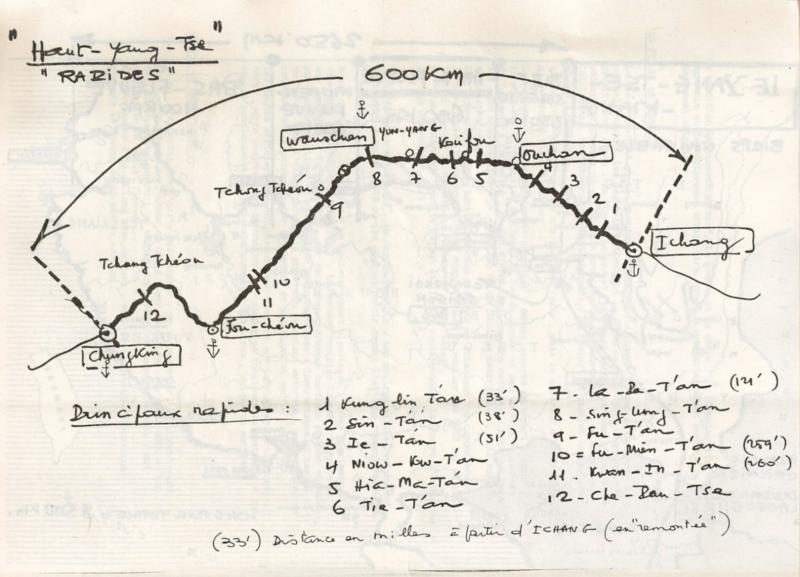 " Haut-Yang-Tse "
" RAPIDES "
600 KM
Wanschan
YUN-YANG
Kaifou
Ouchan
8
7
6
5
4
3
2
1
Tchong Tchéou
9
Ichang
Tchang Tchéou
10
11
12
Fou-chéou
ChungKing
Principaux rapides :
1 Kung lin Tan (33')
2 Sin-Tán (38')
3 Ie-Tán (51')
4 Niow-Kw-T'an
5 Hia-Ma-Tán
6 Tie-T'an
7- La-Pa-T'an (121')
8- Sing-Lung-T'an
9- Fu-T'an
10= Fu-Mien-T'an (259')
11. Kwan-In-T'an (260')
12- Che-Pan-Tse
(33') Distance en milles à partir d'ICHANG (en "remontée")